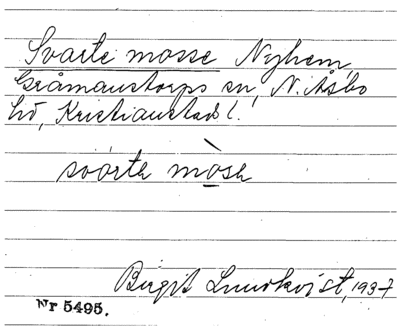 Svarte mosse Nyhem,
Gråmanstorps sn, N. Åsbo
hd, Kristianstads l.
svarte mose
Birgit Lundkvist, 1937
Nr 5495.